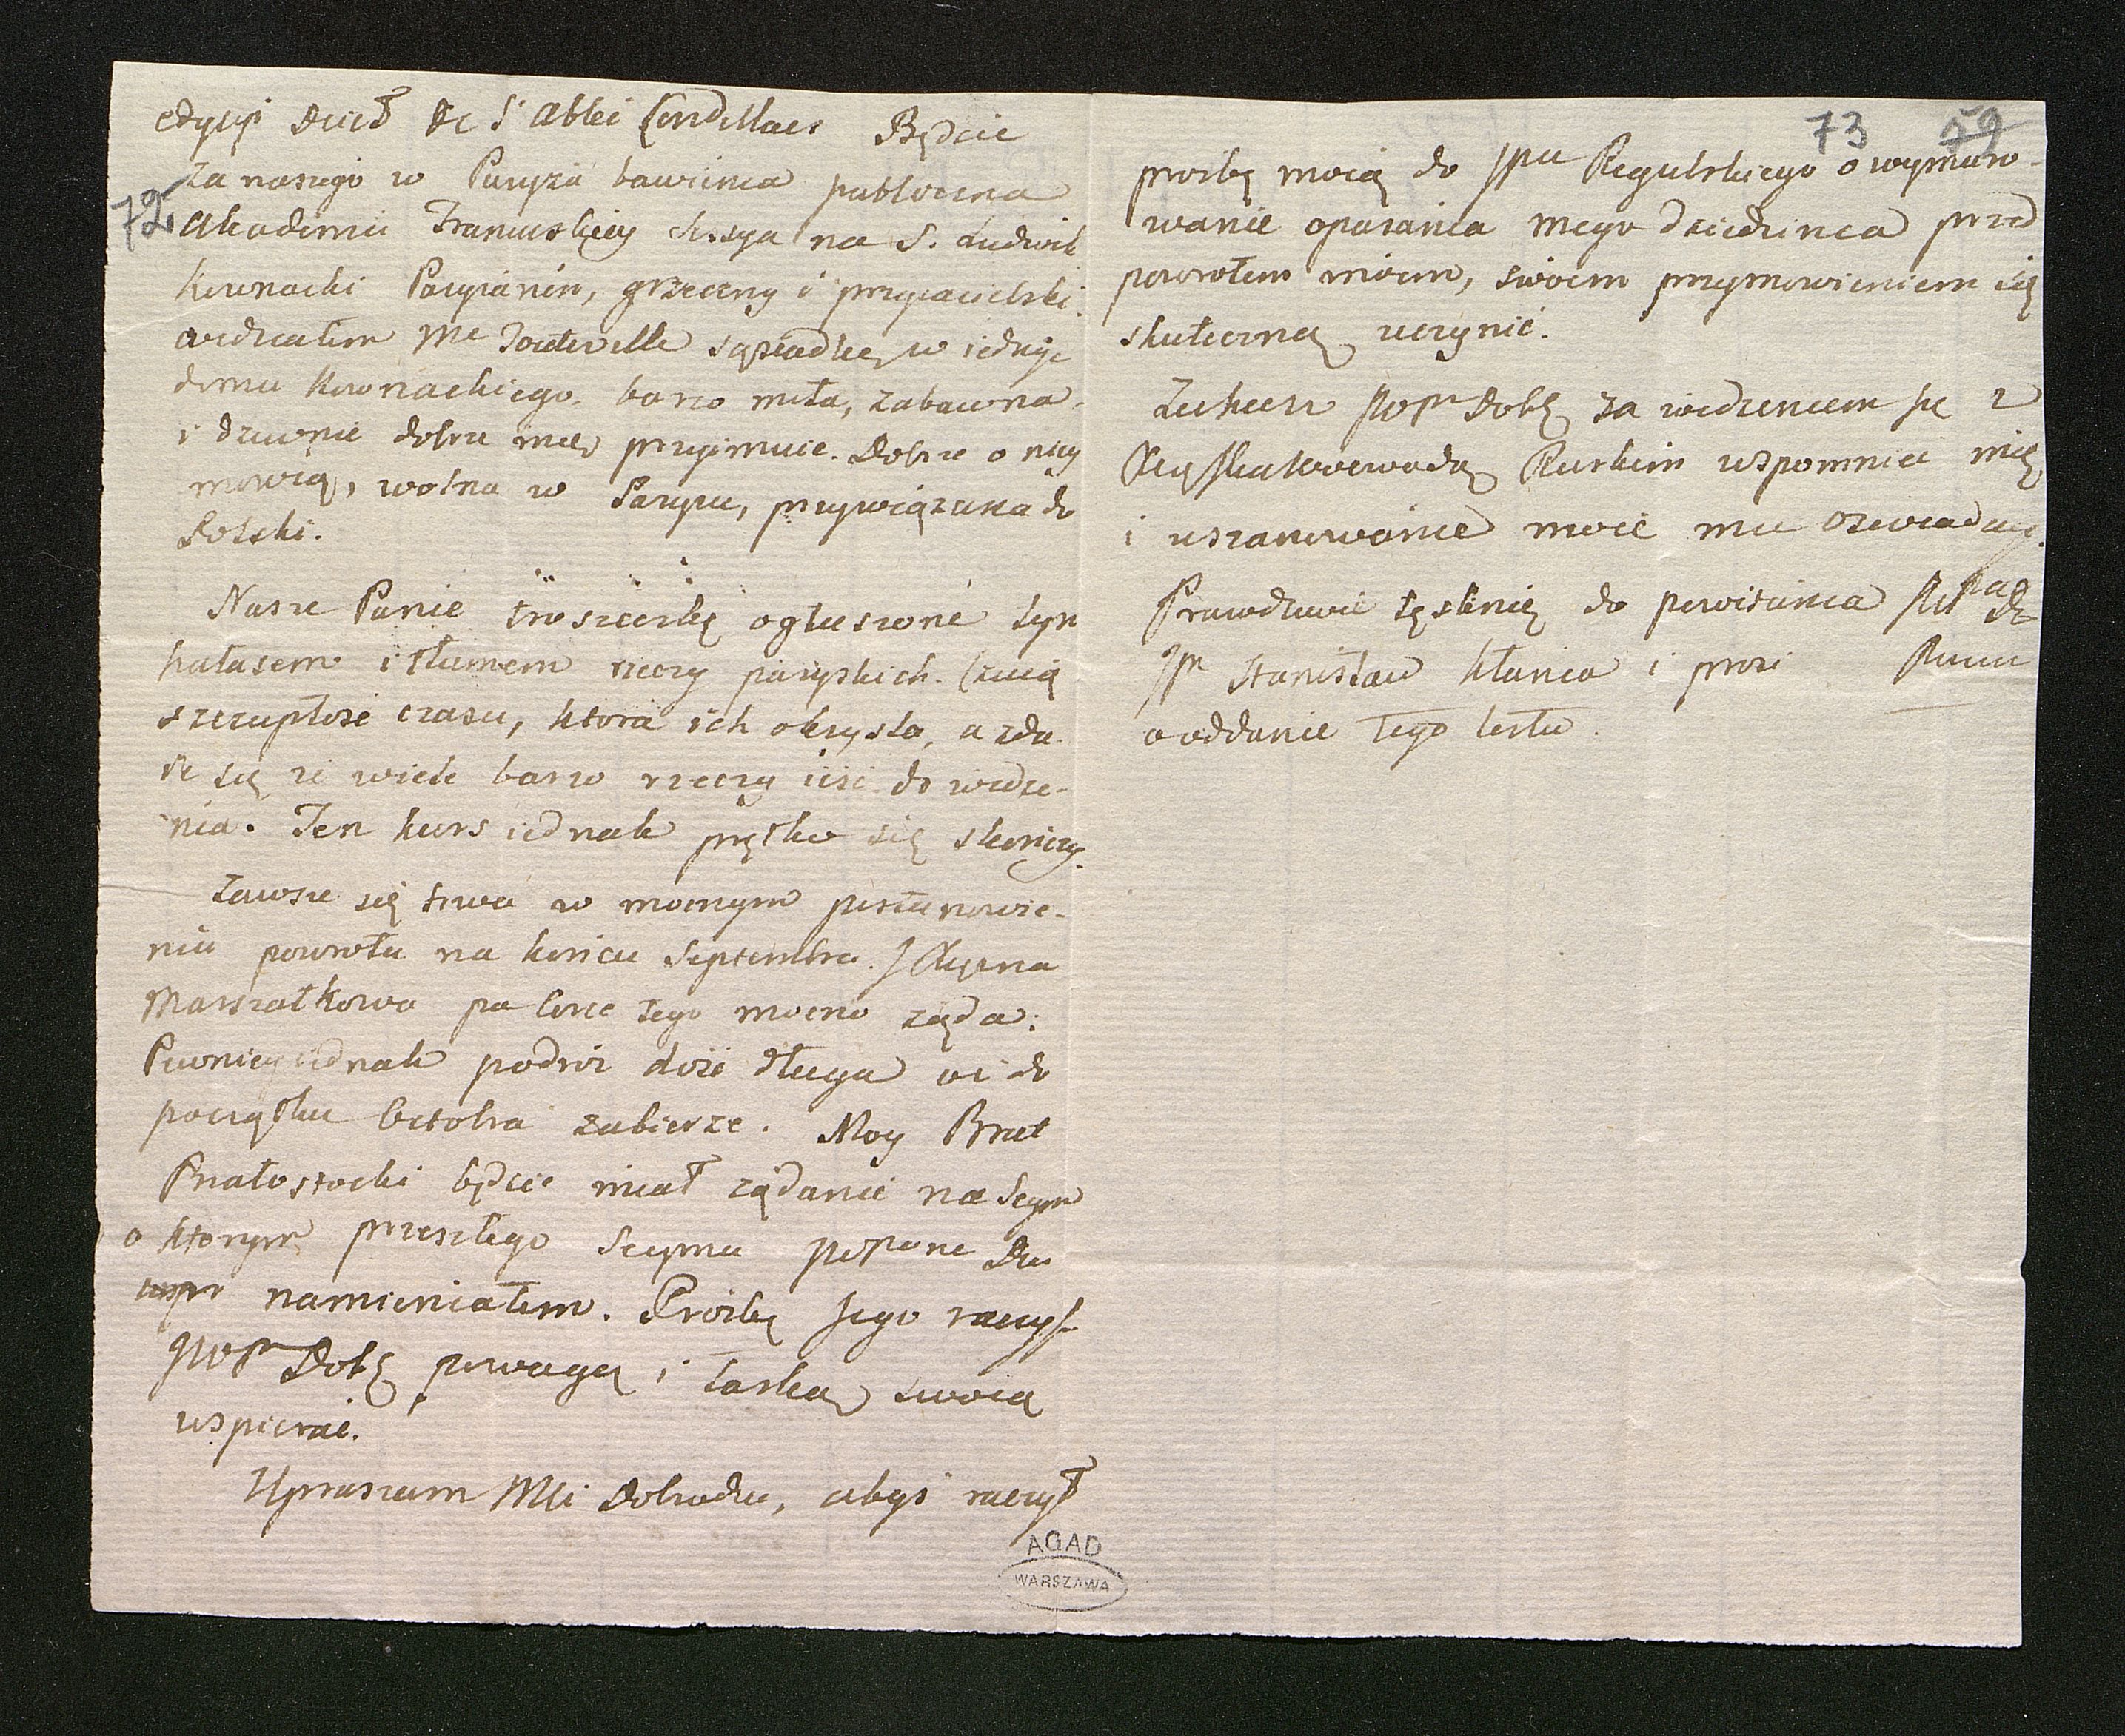 edycyi Dzieł De l'Abbé Condillac Będzie
za naszego w Paryżu bawienia publiczna
72
Akademii Francuskiey sessya na S. Ludwik
Kownacki Paryżanin, grzeczny i przyiacielski.
widziałem Me sąsiadkę w iednym
domu Kownackiego. barzo miła, zabawna
i dziwnie dobrze mię przyimuie. Dobrze o niey
mówią, wolna w Paryżu, przywiązana do
Polski.
Nasze Panie troszeczkę ogłuszone tym
hałasem i tłumem rzeczy paryskich. Czuią
szczupłość czasu, która ich okrysla, a zda
ie się że wiele barzo rzeczy iest do widze-
nia. Ten kurs iednak prętko się skończy.
Zawsze się trwa w mocnym postanowie-
niu powrotu na końcu Septembra. J Xiężna
Marszałkowa po Corce tego mocno żąda.
Pewniey iednak podróż dość długa oi do
początku Octobra zabierze. Moy Brat
Białostocki będzie miał żądanie na Seym
o ktorym przeszłego Seymu Du
namieniałem. Proźbę Jego raczysz
JWPn Dobr powagą i łaską swoią
wspierać.
Upraszam Mci Dobrodzu, abyś raczył
AGAD
WARSZAWA
73 59
proźbę moią do JPu Regulskiego o wymuro-
wanie opasania mego dziedzinca przed
powrotem moiem, swoiem przymowieniem się
skuteczną uczynić.
Zechcesz JWPn Dobr za widzeniem się z
Xcy Jla Woiewodą Ruskim wspomniec mię
i uszanowanie moie mu oswiadczyć.
Prawdziwie tęsknię do powitania Dr
JPn Stanisław kłania i prosi Pana
o oddanie tego listu.